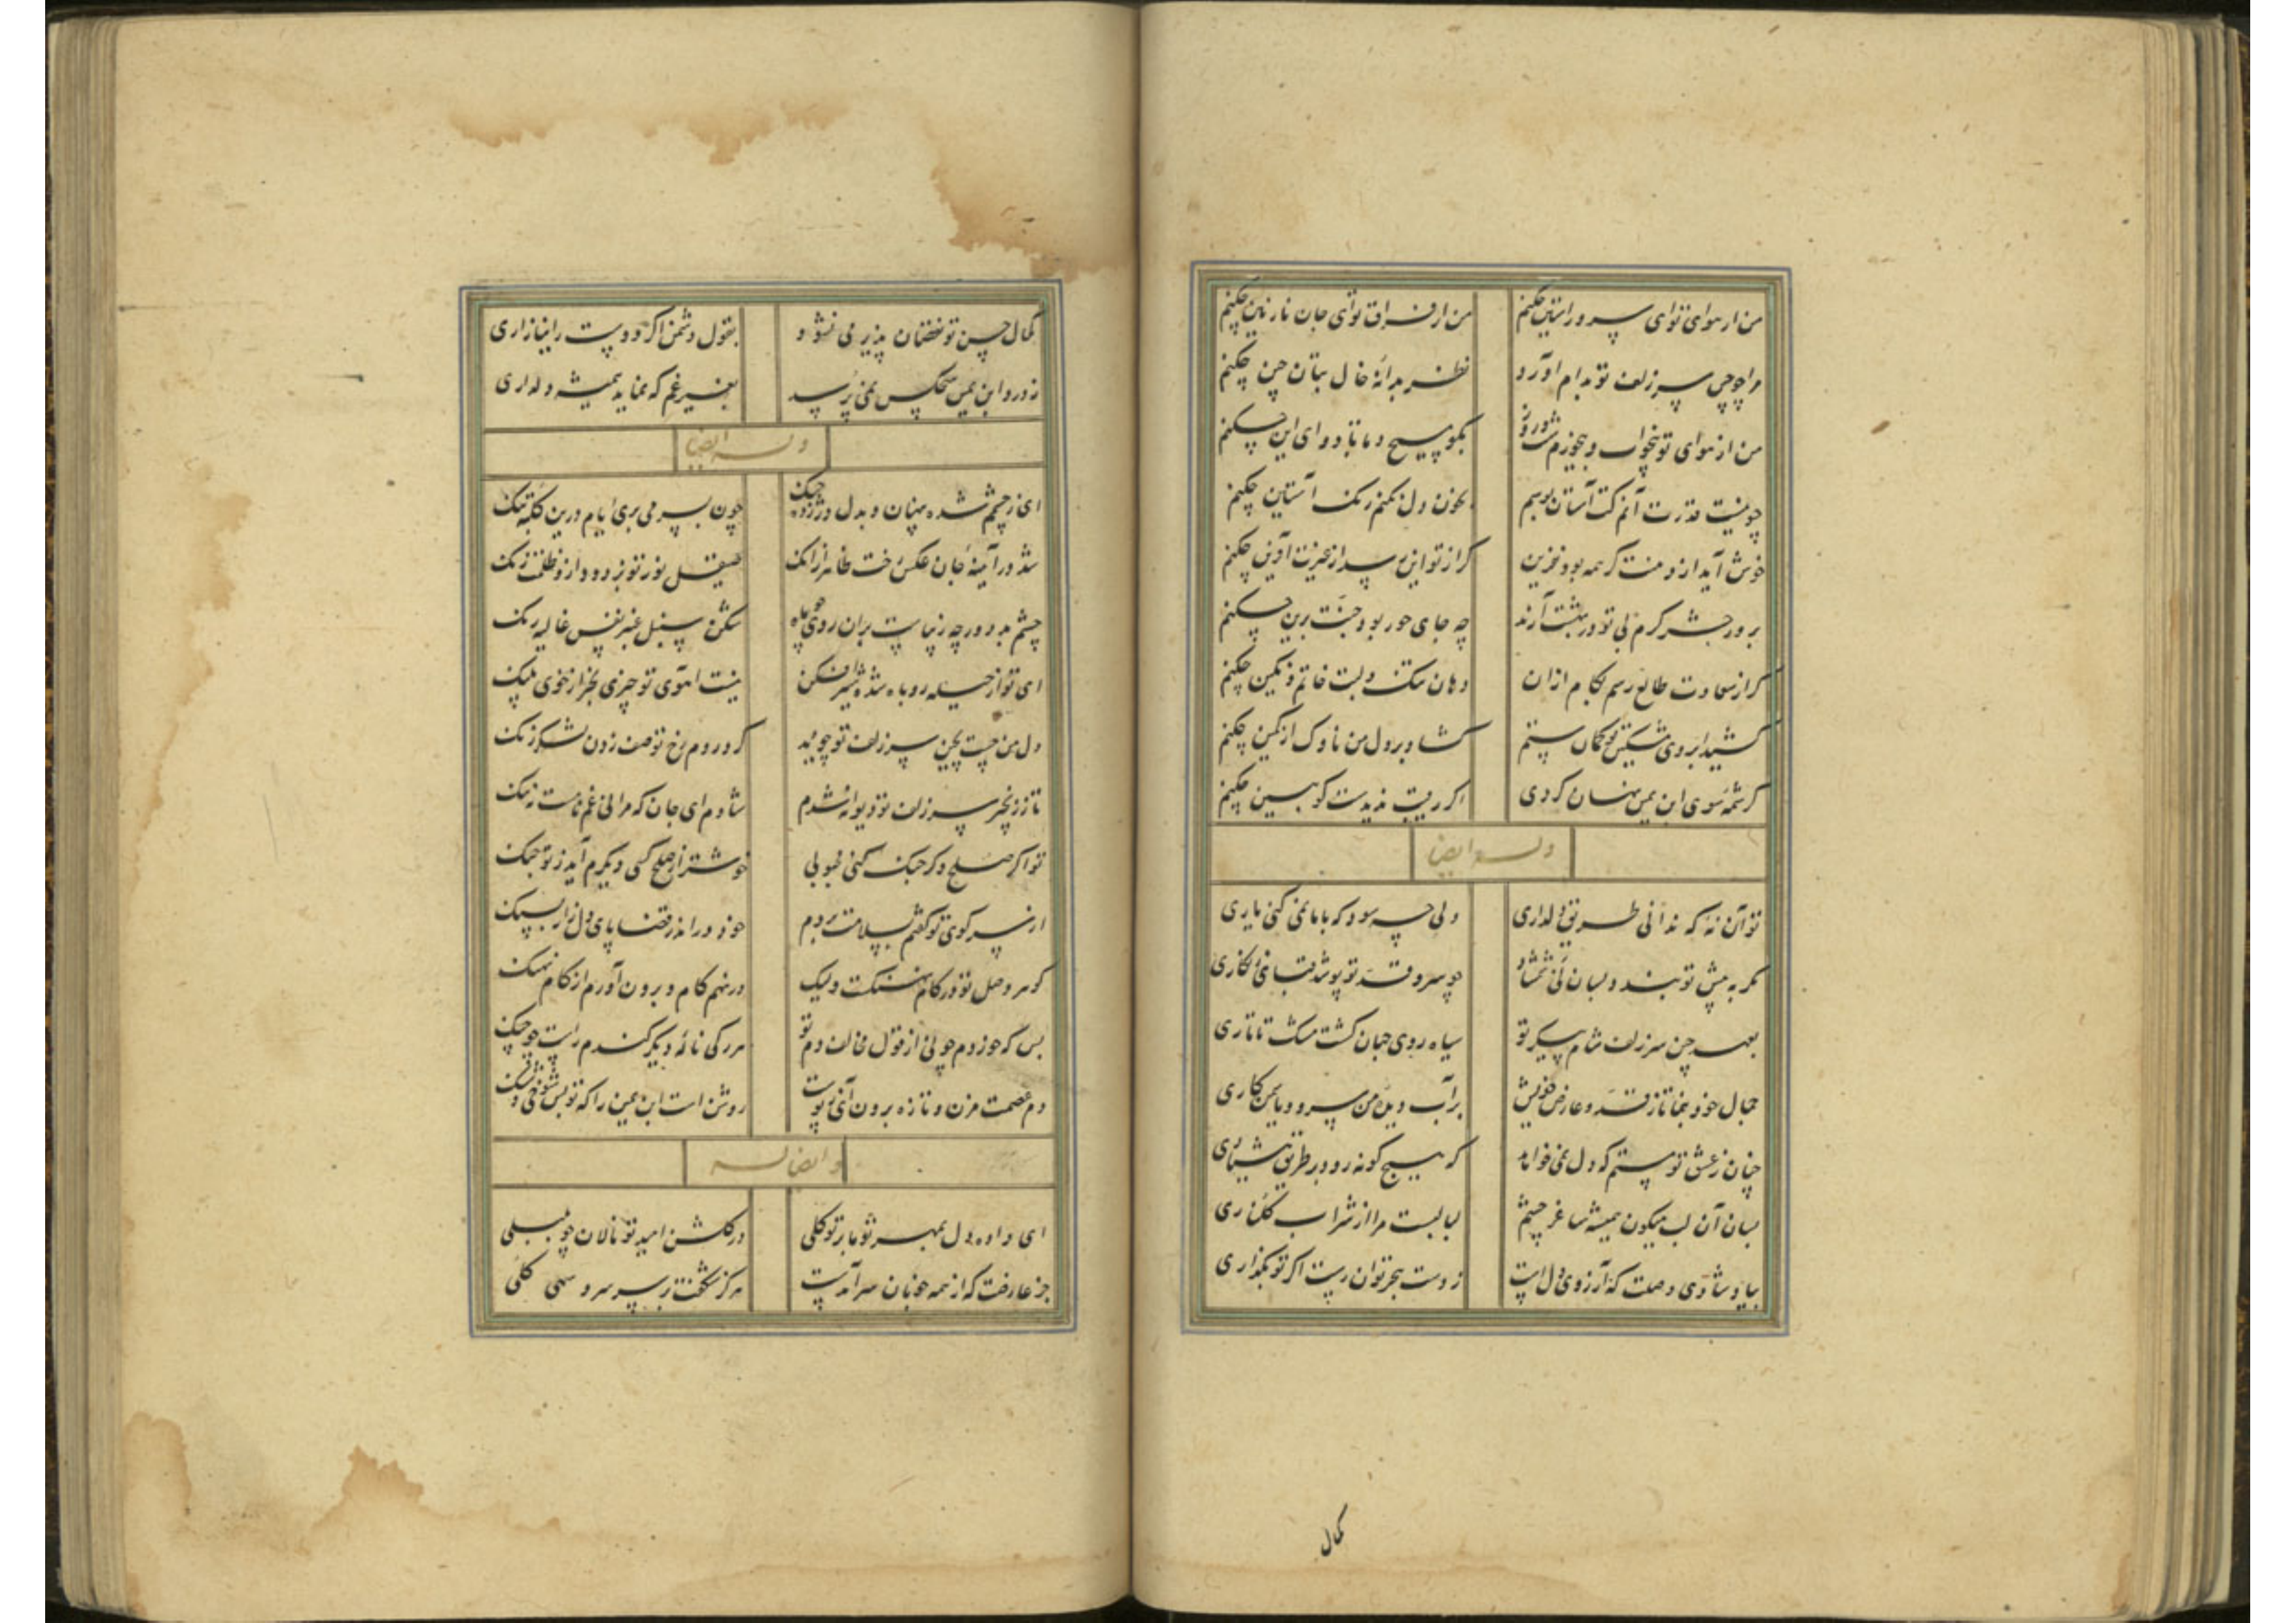 من از هوای تو ای سرو راستین چکنم من از فراق تو ای جان نازنین چکنم
مرا چو چین سر زلف تو بدام آورد نظر بدانهٔ خال بتان چین چکنم
من از هوای تو بیخواب و بیخورم شب و روز بگو مسیح دما تا دوای این چکنم
چو نیست قدرت آنم کت آستان بوسم بخون دل نکنم رنک آستین چکنم
خوش آید از دمنت کر همه بود نفرین کر از تو این رسد از غیرت آفرین چکنم
بروز حشر کرم بی تو در بهشت آرند چه جای حور بود جنت برین چکنم
کر از سعادت طالع رسم بکام ازان دهان تنک و لبت خاتم و نکین چکنم
کشید ابروی مشکین تو کمان ستم کشاد بر دل من ناوک از کمین چکنم
کرشمه سوی ابن یمین نهان کردی اکر رقیب ندیدست کو ببین چکنم
وله ایضا
تو آن نهٔ که ندانی طریق دلداری ولی چه سود که با ما نمی کنی یاری
کمر به پیش تو بندد بسان نی شمشاد چو سرو قد تو پوشد قبای زنکاری
بعهد چین سر زلف شام پیکر تو سیاه روی جهان کشت مشک تاتاری
جمال خود بنما تا ز قد و عارض خویش بر آب دیده من سرو و یاسمن کاری
چنان ز عشق تو مستم که دل نمی خواهد که هیچ کونه رود بر طریق هشیاری
بسان آن لب میکون همیشه ساغر چشم لبالبست مرا از شراب کلناری
بیا و شادی وصلت که آرزوی دل است ز دست هجر توان رست اکر تو بکذاری
کمال
کمال حسن تو نقصان پذیر می نشود بقول دشمن اکر دوست را نیازاری
ز درد ابن یمین هیچکس نمی پرسد بغیر غم که نماید همیشه دلداری
وله ایضا
ای ز چشمم شده پنهان و بدل در زده چنک چون بسر می بری ایام درین کلبهٔ تنک
شد در آیینهٔ جان عکس رخت ظاهر ازانک صیقل نور تو بزدود ازو ظلمت زنک
چشم بد دور چه زیباست بران روی چو ماه شکن سنبل عنبر نفس غالیه رنک
ای تو از حیله روباه شده شیر افکن نیست آهوی تو چیزی بجز از خوی پلنک
دل من جست بچین سر زلف تو چو دید کرد روم رخ تو صف زدن لشکر زنک
تا ز زنجیر سر زلف تو دیوانه شدم شادم ای جان که مرا نی غم نامست نه ننک
تو اکر صلح و کر جنک کنی محبوبی خوشتر از صلح کسی دیکرم آید ز تو جنک
از سر کوی تو کفتم بسلامت بروم خود در اندر قضا پای دل زار بسنک
کوهر وصل تو در کام نهنکست ولیک در نهم کام و برون آورم از کام نهنک
بس که خوردم چو نی از قول مخالف دم تو هر رکی نالهٔ دیکر کندم راست چو چنک
دم عصمت مزن و تازه برون آی ز پوست روشن است ابن یمین را که تو بس شوخی و شنک
و ایضا له
ای داده دل بمهر تو ما بر توکلی در کلشن امید تو نالان چو بلبلی
جز عارضت که از همه خوبان سرآمدست هرکز شکفت بر سر سرو سهی کلی